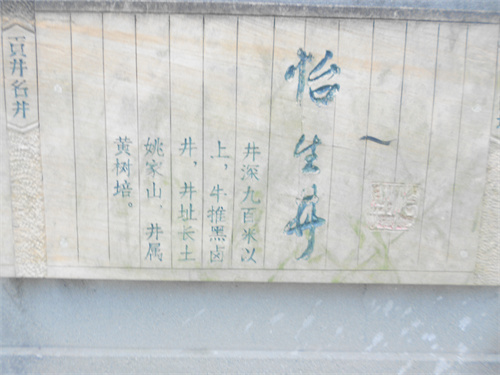 怡生井
井深九百米以
上，牛推黑卤
井，井址长土
姚家山，井属
黄树培。
《贡井名井》